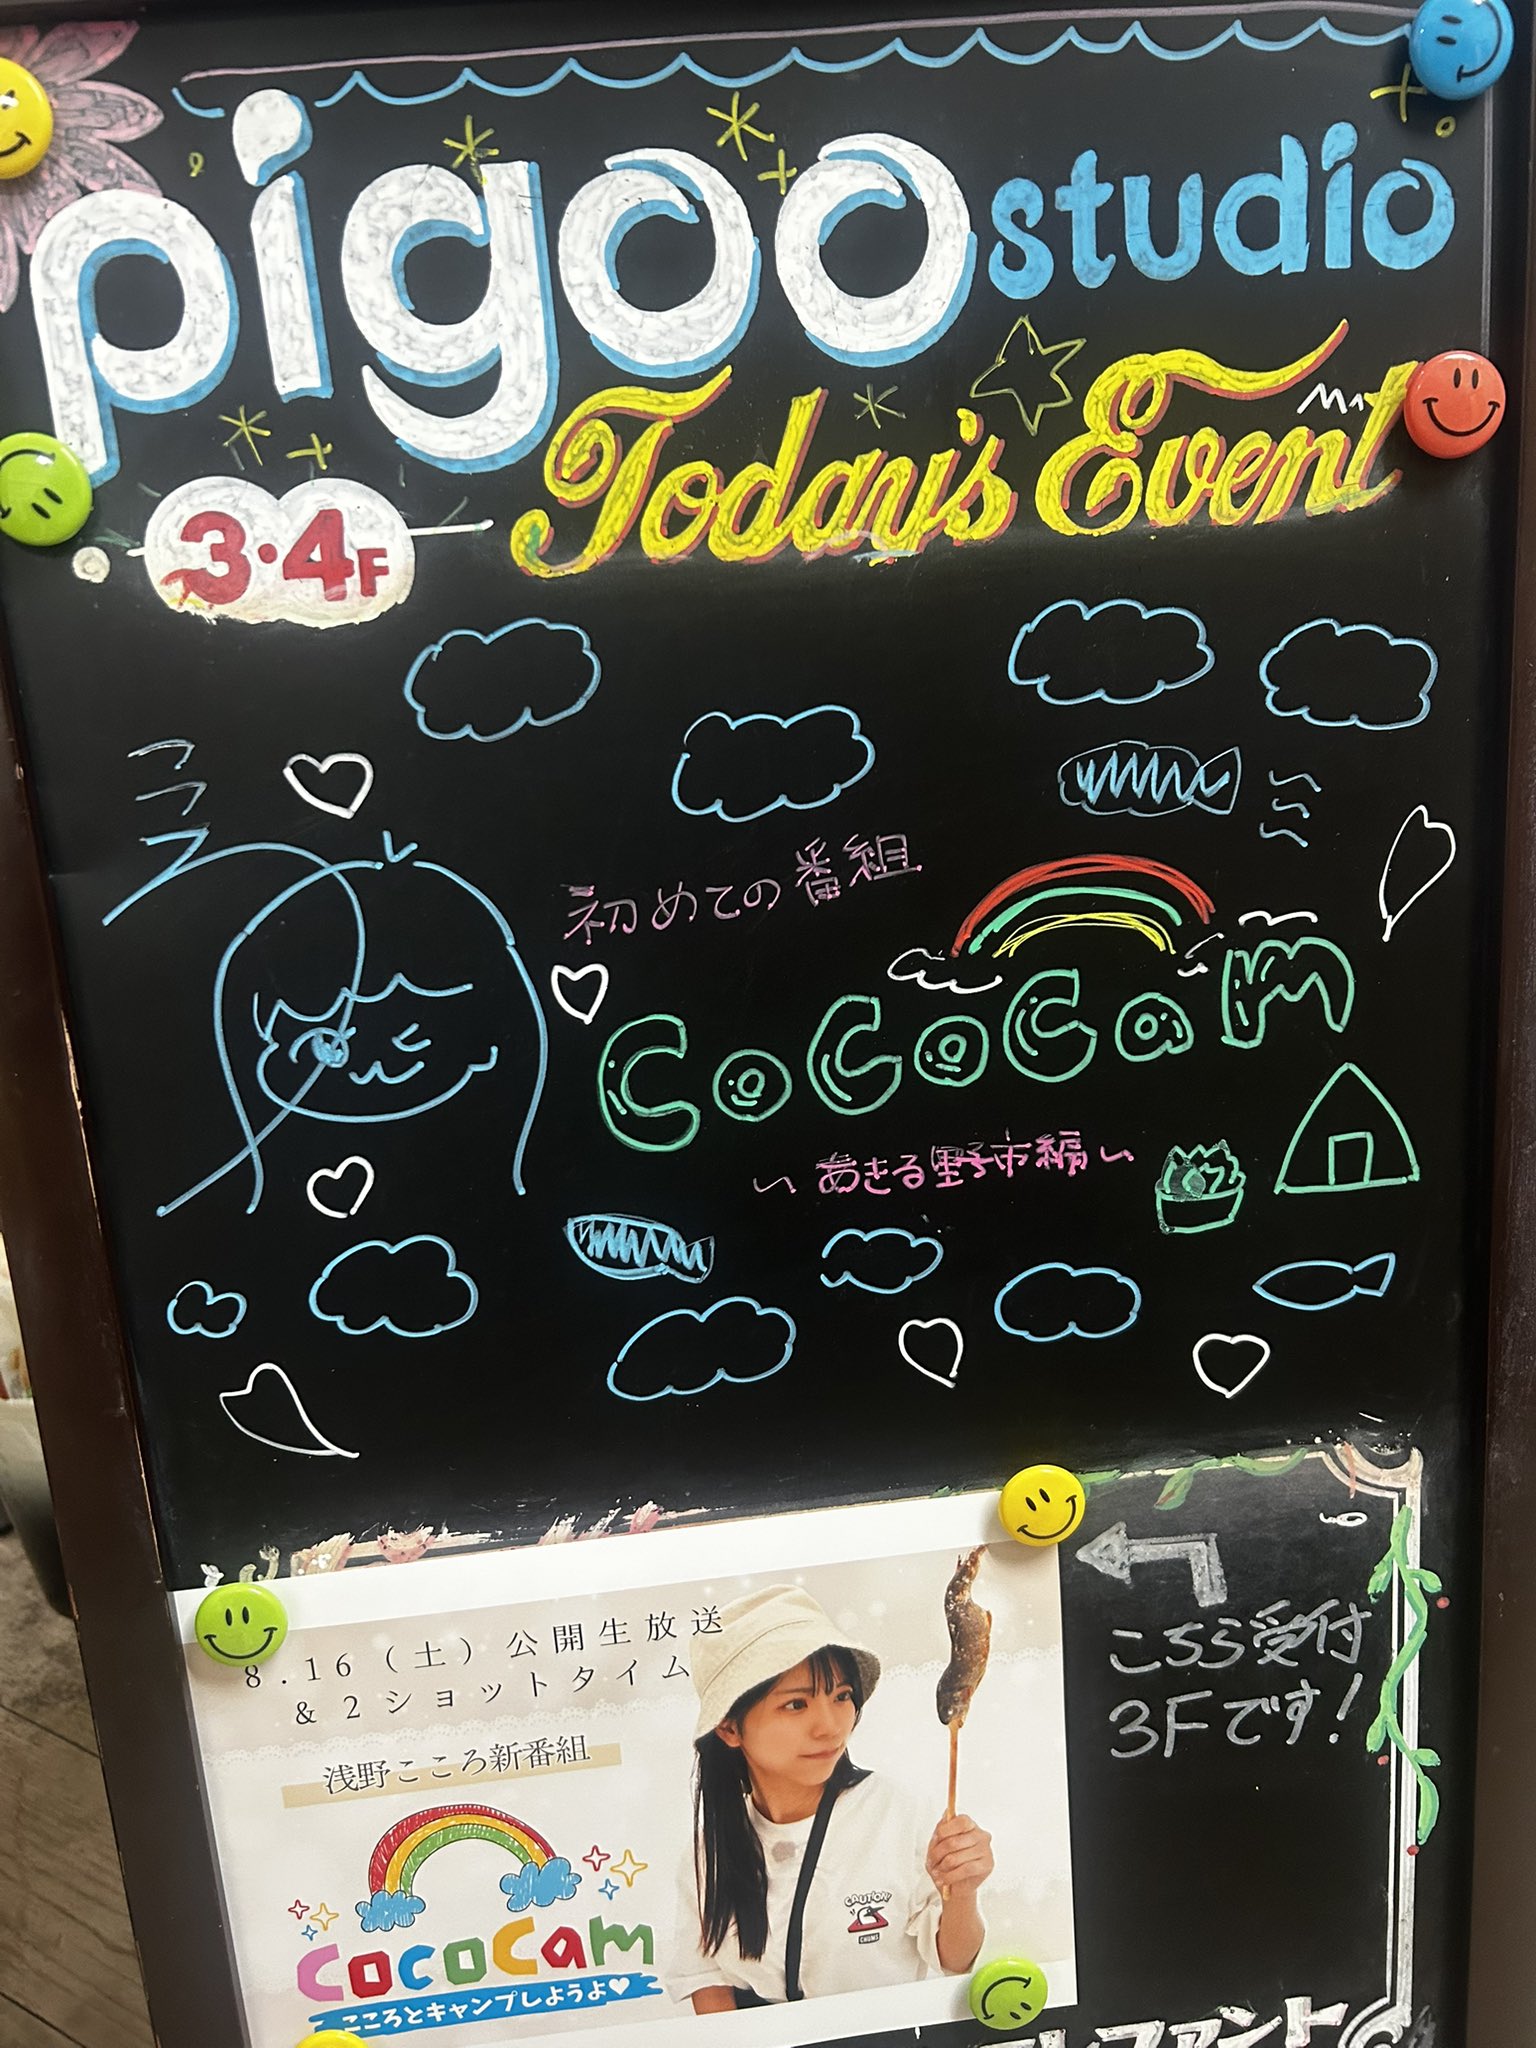 pigoo studio
Today's Event
3・4F
初めての番組
CoCoCam
〜あきる野市編〜
8.16(土)公開生放送
&2ショットタイム
浅野こころ新番組
CocoCam
こころとキャンプしようよ♥
CAUTION!
CHUMS
こちら受付
3Fです!